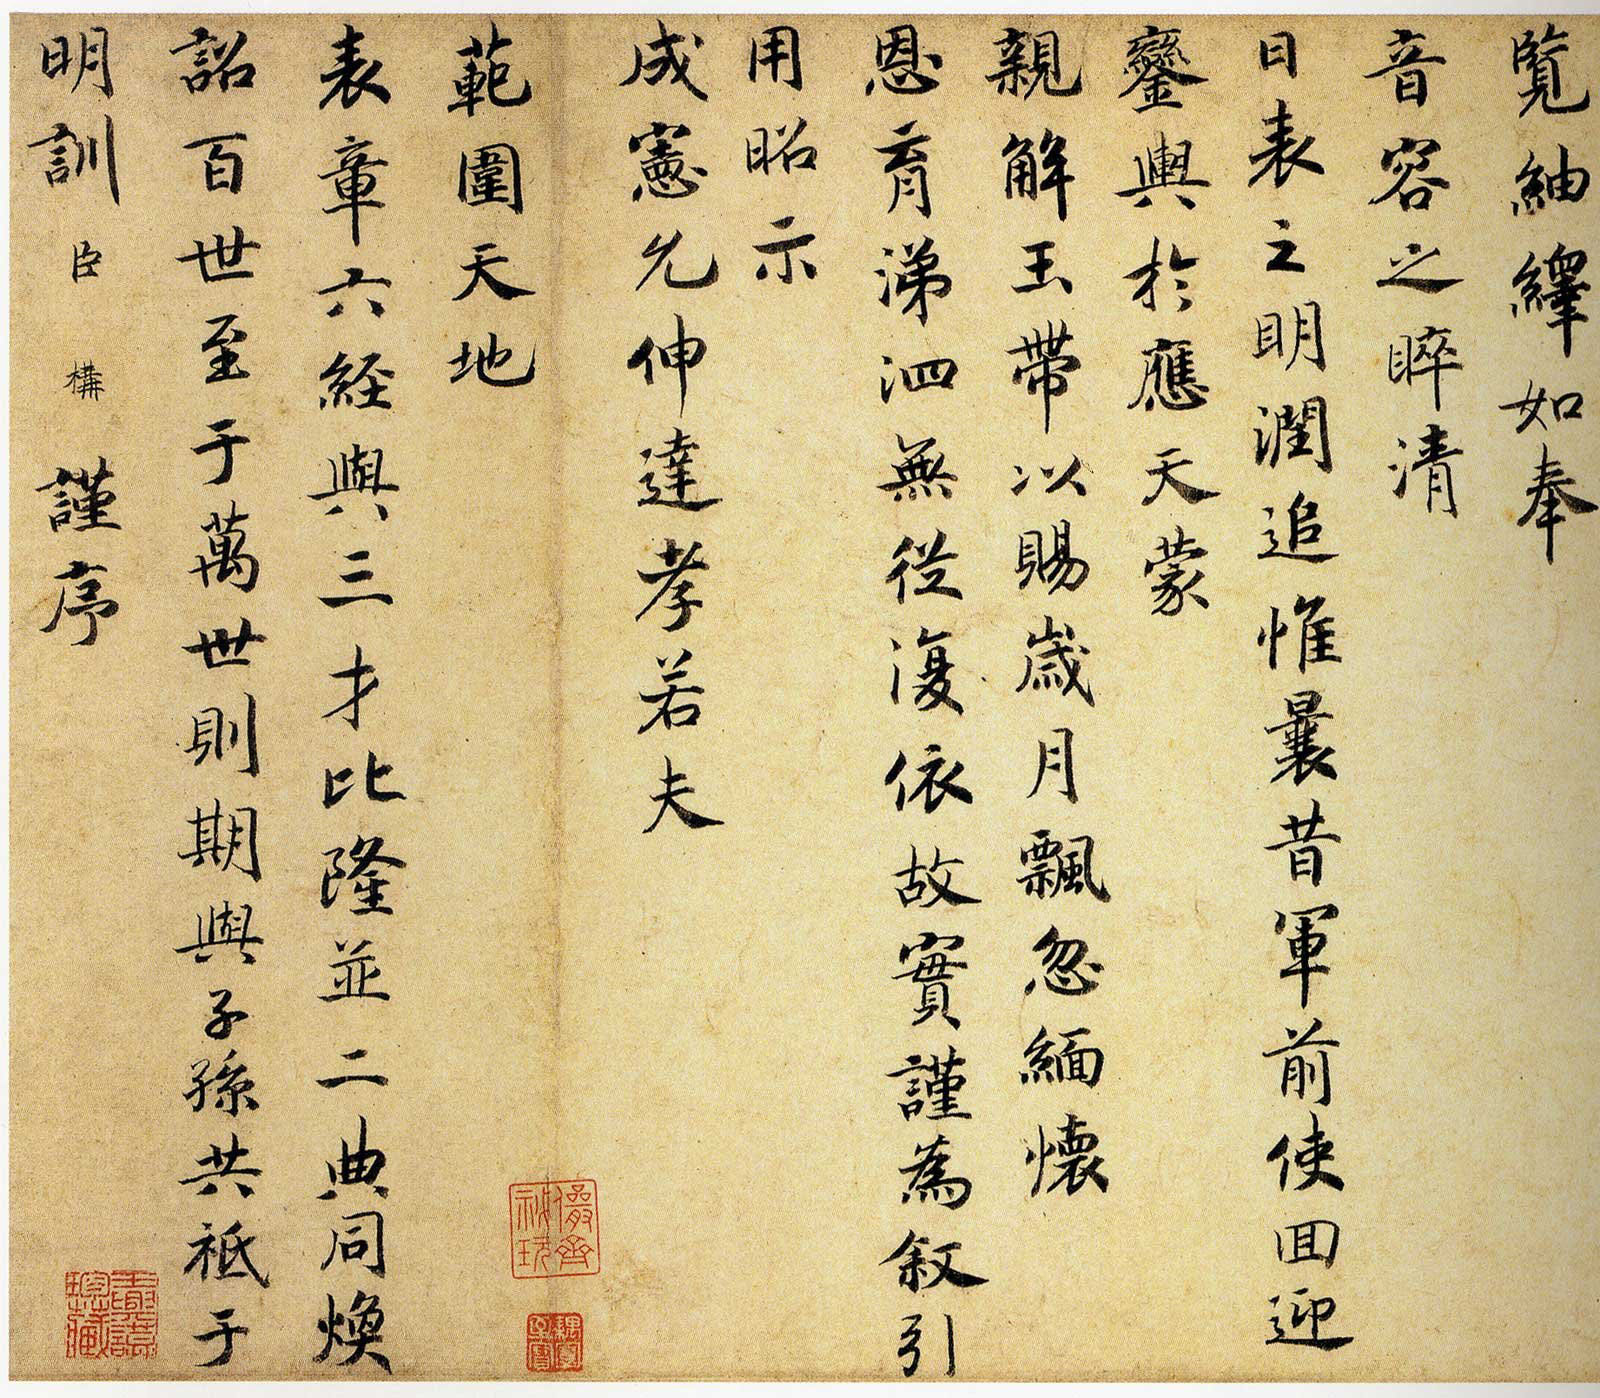 覽紬繹如奉
音容之睟清
日表之明潤追惟曩昔軍前使回迎
鑾輿於應天蒙
親解玉帶以賜歲月飄忽緬懷
恩育涕泗無從復依故實謹為叙引
用昭示
成憲允伸達孝若夫
範圍天地
表章六經與三才比隆並二典同煥
詔百世至于萬世則期與子孫共祗于
明訓臣構謹序
儼齋秘玩